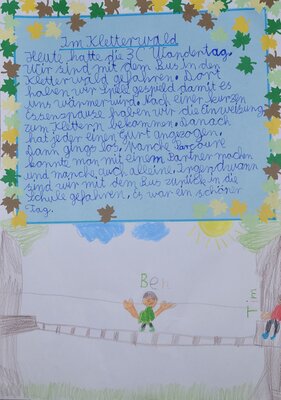 Im Kletterwald
Heute hatte die 3C Wandertag.
Wir sind mit dem Bus in den
Kletterwald gefahren. Dort
haben wir Spiel gespield damit es
uns wärmer wird. Nach einer kurzen
Essenspause haben wir die Einweisung
zum Klettern bekommen. Danach
hat jeder einen Gurt angezogen.
Dann gings los. Manche Parcoure
konnte man mit einem Partner machen
und manche auch alleine. Irgendwann
sind wir mit dem Bus zurück in die
Schule gefahren. Es war ein schöner
Tag.
Ben
Tim